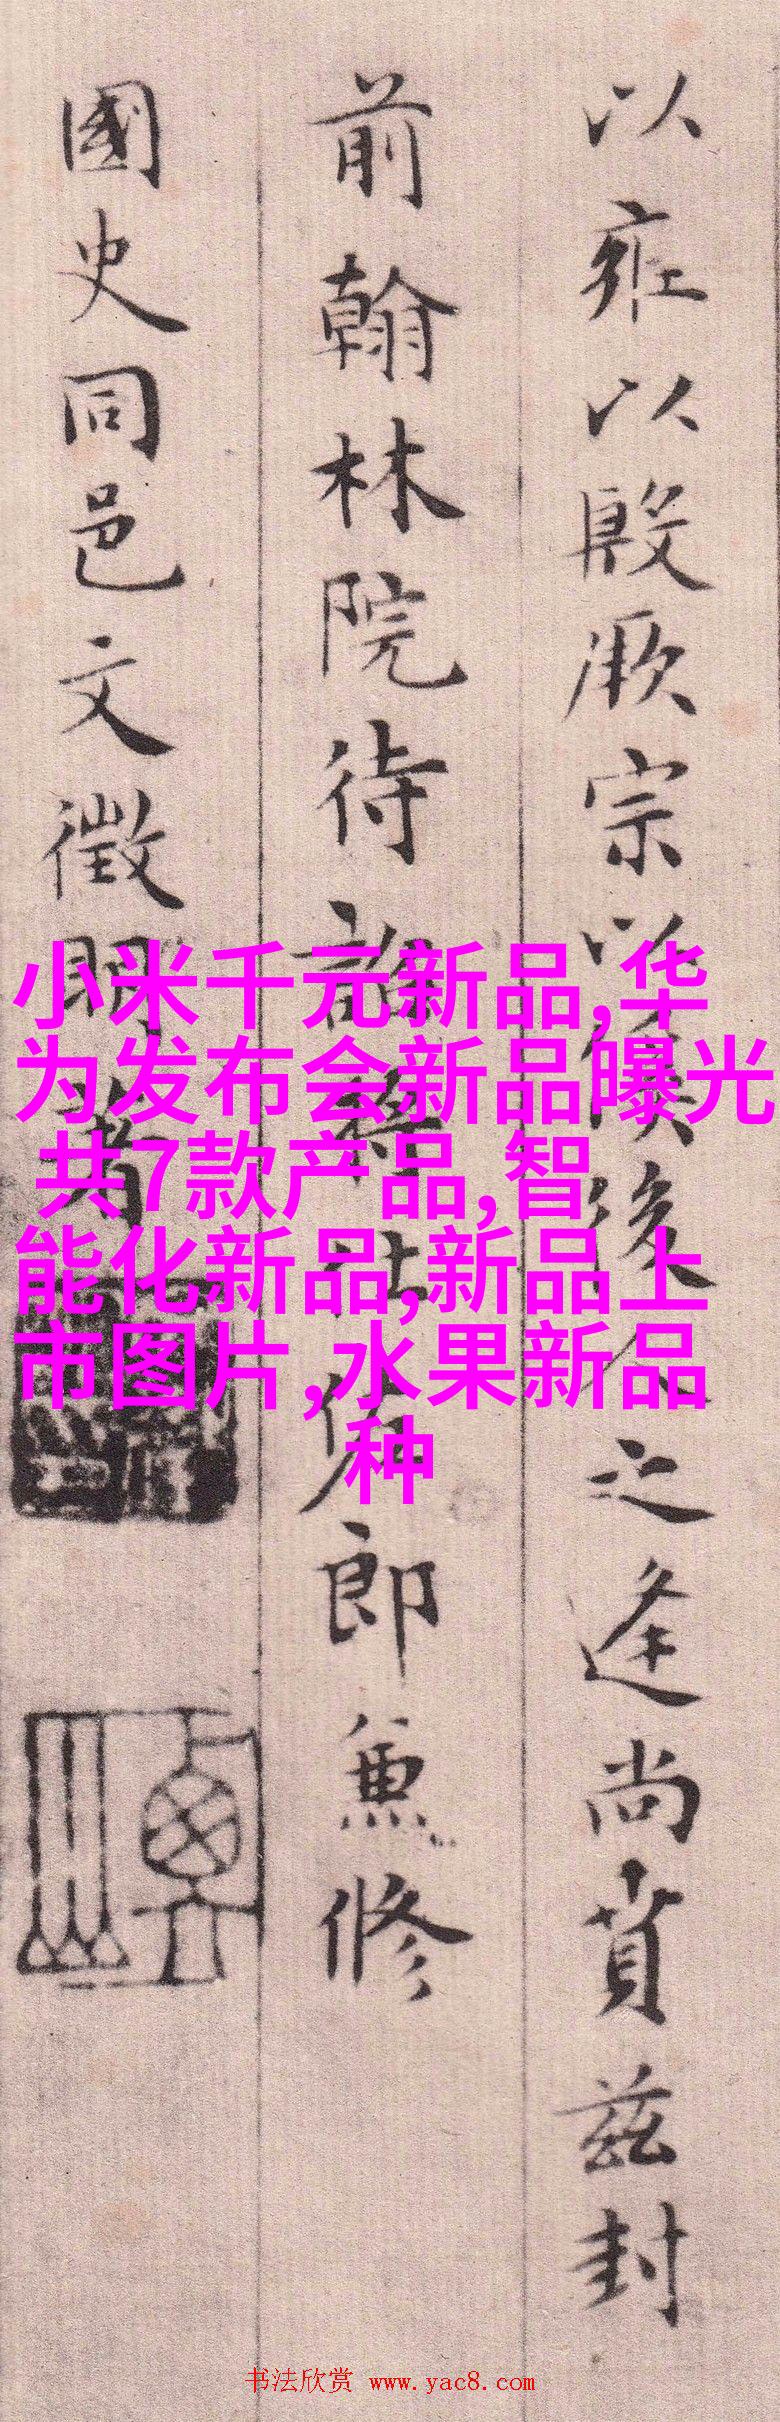 以雍以殷厥宗以俟後人之逢尚賁茲封
前翰林院待詔將仕佐郎兼修
國史同邑文徵明著
小米千元新品,华
为发布会新品曝光
共7款产品,智
能化新品,新品上
市图片,水果新品
种
书法欣赏 www.yac8.com